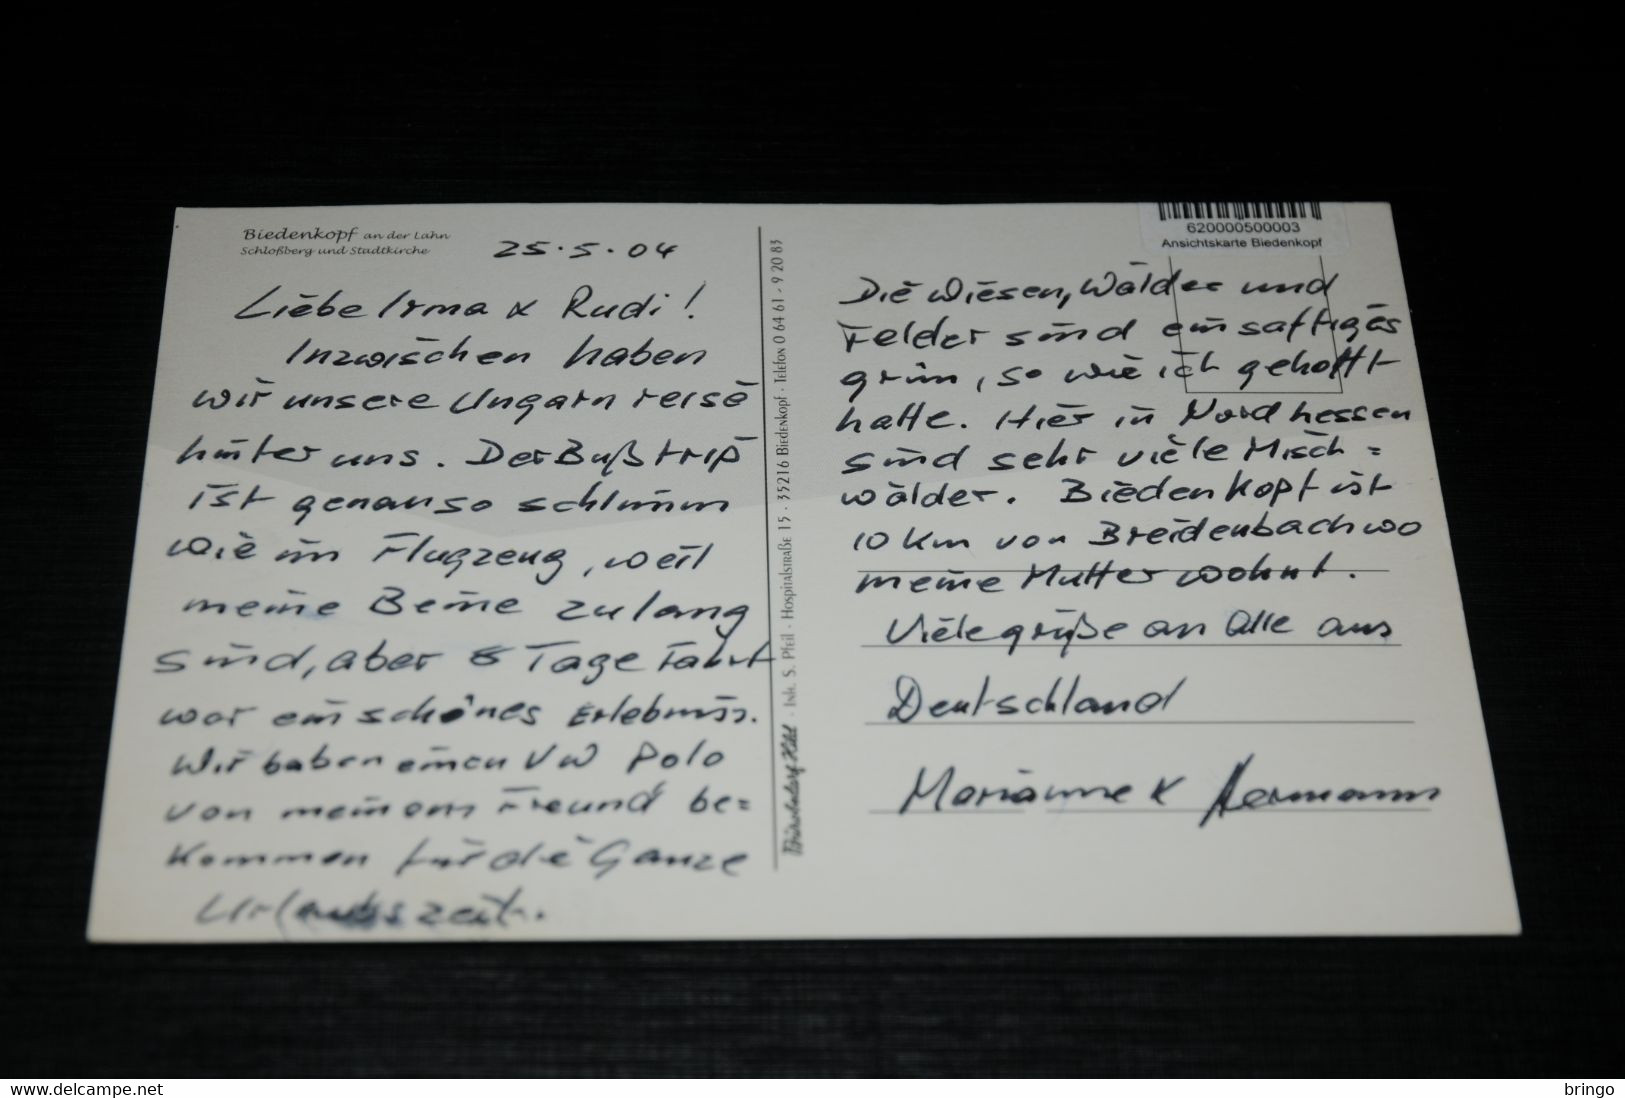 Biedenkopf an der Lahn
Schloßberg und Stadtkirche
25.5.04
Liebe Irma & Rudi!
Inzwischen haben
wir unsere Ungarn reise
hinter uns. Der Bußtrip
ist genauso schlimm
wie im Flugzeug, weil
meine Beine zu lang
sind, aber 5 Tage Fahrt
war ein schönes Erlebniss.
Wir haben einen VW Polo
von meinem Freund be=
kommen für die Ganze
Urlaubszeit.
Inh. S. Pfeil · Hospitalstraße 15 · 35216 Biedenkopf · Telefon 0 64 61 - 9 20 83
620000500003
Ansichtskarte Biedenkopf
Die Wiesen, Wälder und
Felder sind ein saftiges
grün, so wie ich gehofft
hatte. Hier in Nordhessen
sind sehr viele Misch=
wälder. Biedenkopf ist
10 Km von Breidenbach wo
meine Mutter wohnt.
Viele grüße an alle aus
Deutschland
Marianne & Hermann
© Delcampe.net
bringo